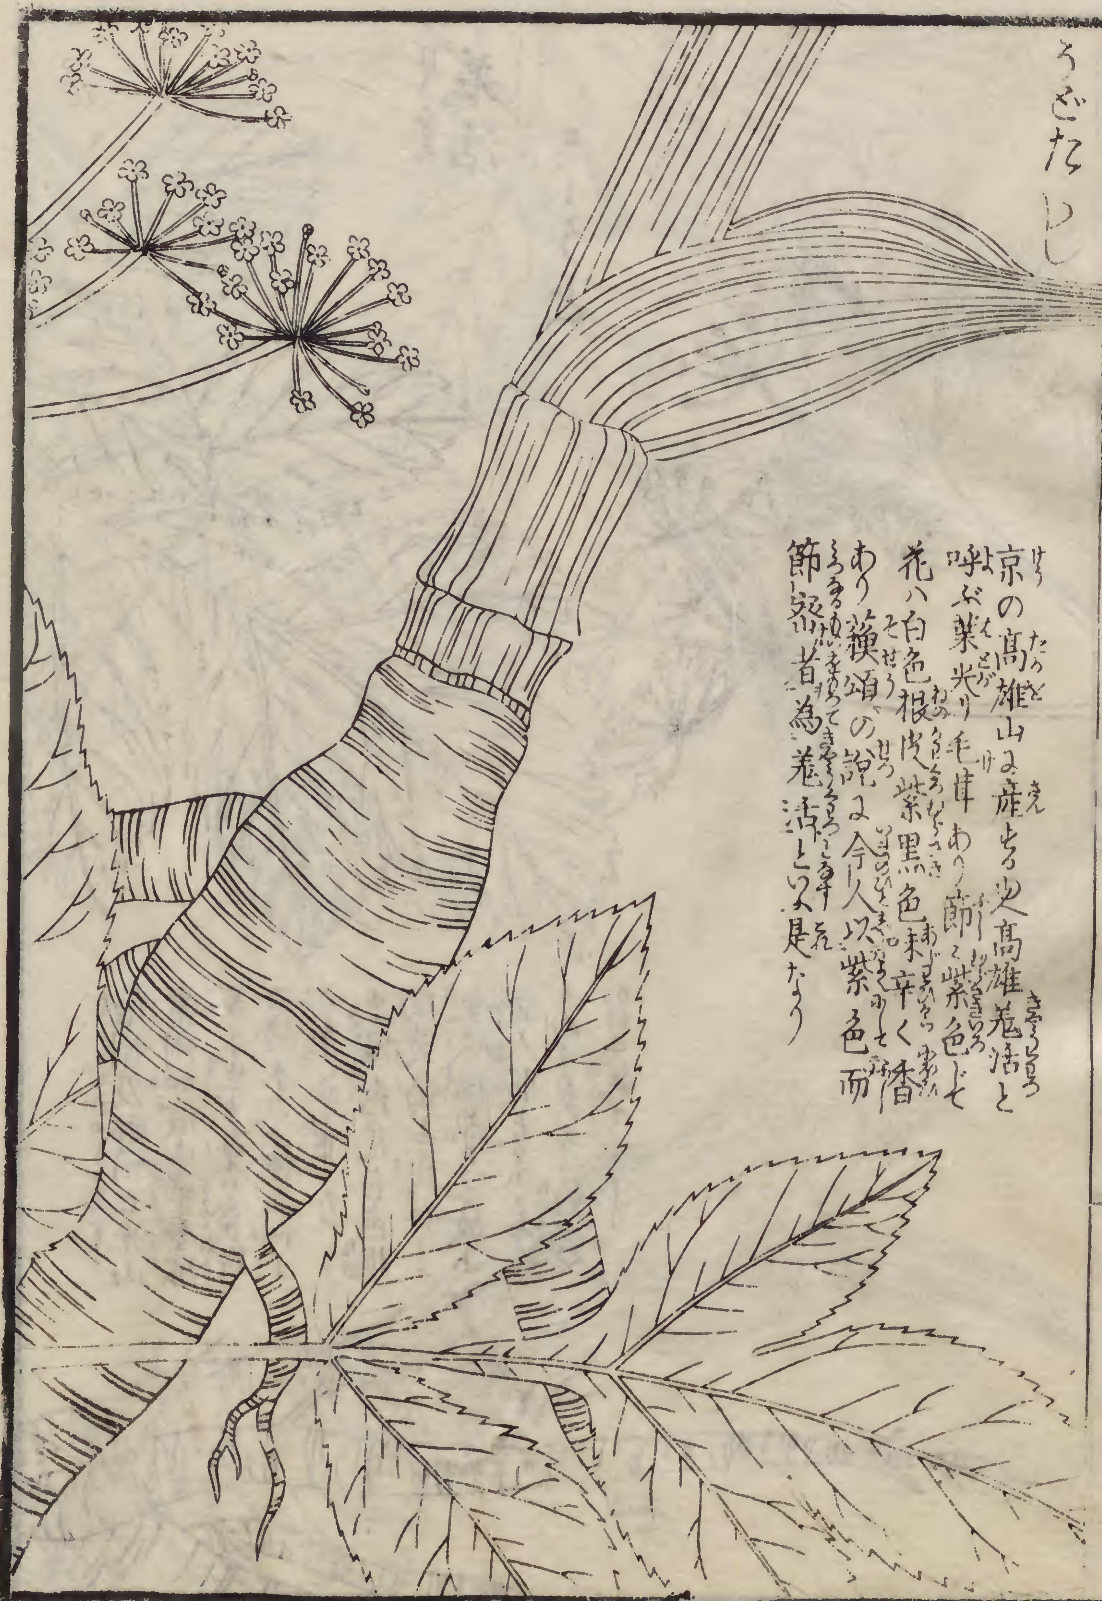 うどたらし
京の髙雄山に産する也髙雄羌活と
呼ぶ葉尖り毛茸あり節〻紫色にて
花ハ白色根皮紫黒色味辛く香
あり蘓頌の説に今人以紫色而
節密者為羌活といふ是なり